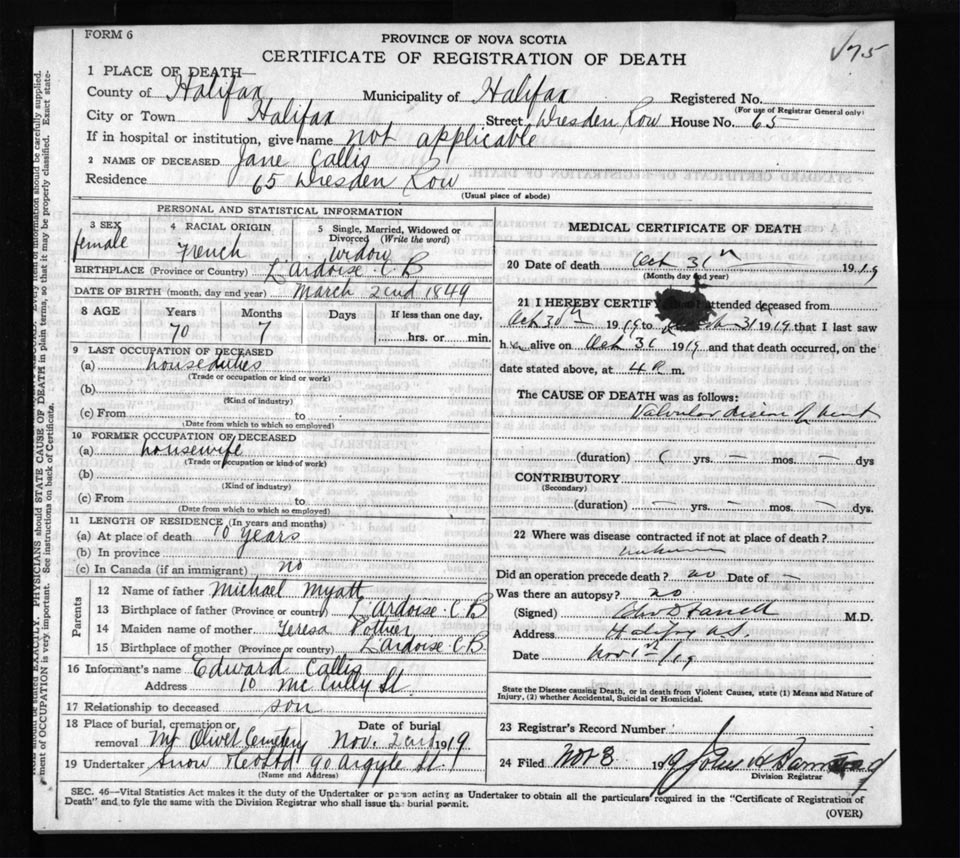 FORM 6
PROVINCE OF NOVA SCOTIA
CERTIFICATE OF REGISTRATION OF DEATH
1 PLACE OF DEATH
County of Halifax Municipality of Halifax Registered No.
(For use of Registrar General only)
City or Town Halifax Street Dresden Row House No. 65
If in hospital or institution, give name not applicable
2 NAME OF DECEASED Jane Callis
Residence 65 Dresden Row
(Usual place of abode)
PERSONAL AND STATISTICAL INFORMATION
3 SEX 4 RACIAL ORIGIN 5 Single, Married, Widowed or
Divorced (Write the word)
female French widow
BIRTHPLACE (Province or Country) L'Ardoise C B
DATE OF BIRTH (month, day and year) March 22nd 1849
8 AGE Years Months Days If less than one day,
70 7 hrs. or min.
9 LAST OCCUPATION OF DECEASED
(a) houseduties
(Trade or occupation or kind or work)
(b)
(Kind of industry)
(c) From to
(Date from which to which so employed)
10 FORMER OCCUPATION OF DECEASED
(a) housewife
(Trade or occupation or kind of work)
(b)
(Kind of industry)
(c) From to
(Date from which to which so employed)
11 LENGTH OF RESIDENCE (In years and months)
(a) At place of death 10 years
(b) In province
(c) In Canada (if an immigrant) no
Parents
12 Name of father Michael Myatt
13 Birthplace of father (Province or country) L'Ardoise C B
14 Maiden name of mother Teresa Pothier
15 Birthplace of mother (Province or country) L'ardoise C B
16 Informant's name Edward Callis
Address 10 McCully St.
17 Relationship to deceased son
18 Place of burial, cremation or Date of burial
removal Mt Olivet Cemetery Nov. 2nd 1919
19 Undertaker Snow 90 Argyle St.
(Name and Address)
MEDICAL CERTIFICATE OF DEATH
20 Date of death Oct 31 1919
(Month, day and year)
21 I HEREBY CERTIFY attended deceased from
Oct 30th 1919 to 31 1919 that I last saw
h alive on Oct 31 1919 and that death occurred, on the
date stated above, at 4 m.
The CAUSE OF DEATH was as follows:
Valvular disease of heart
(duration) yrs. — mos. — dys
CONTRIBUTORY
(Secondary)
(duration) — yrs. — mos. — dys.
22 Where was disease contracted if not at place of death?
unknown
Did an operation precede death? no Date of —
Was there an autopsy? no
(Signed) M.D.
Address Halifax N.S.
Date Nov 1st/19
State the Disease causing Death, or in death from Violent Causes, state (1) Means and Nature of
Injury, (2) whether Accidental, Suicidal or Homicidal.
23 Registrar's Record Number
24 Filed Nov 3 19 John H
Division Registrar
SEC. 46—Vital Statistics Act makes it the duty of the Undertaker or person acting as Undertaker to obtain all the particulars required in the "Certificate of Registration of
Death" and to fyle the same with the Division Registrar who shall issue the burial permit.
(OVER)